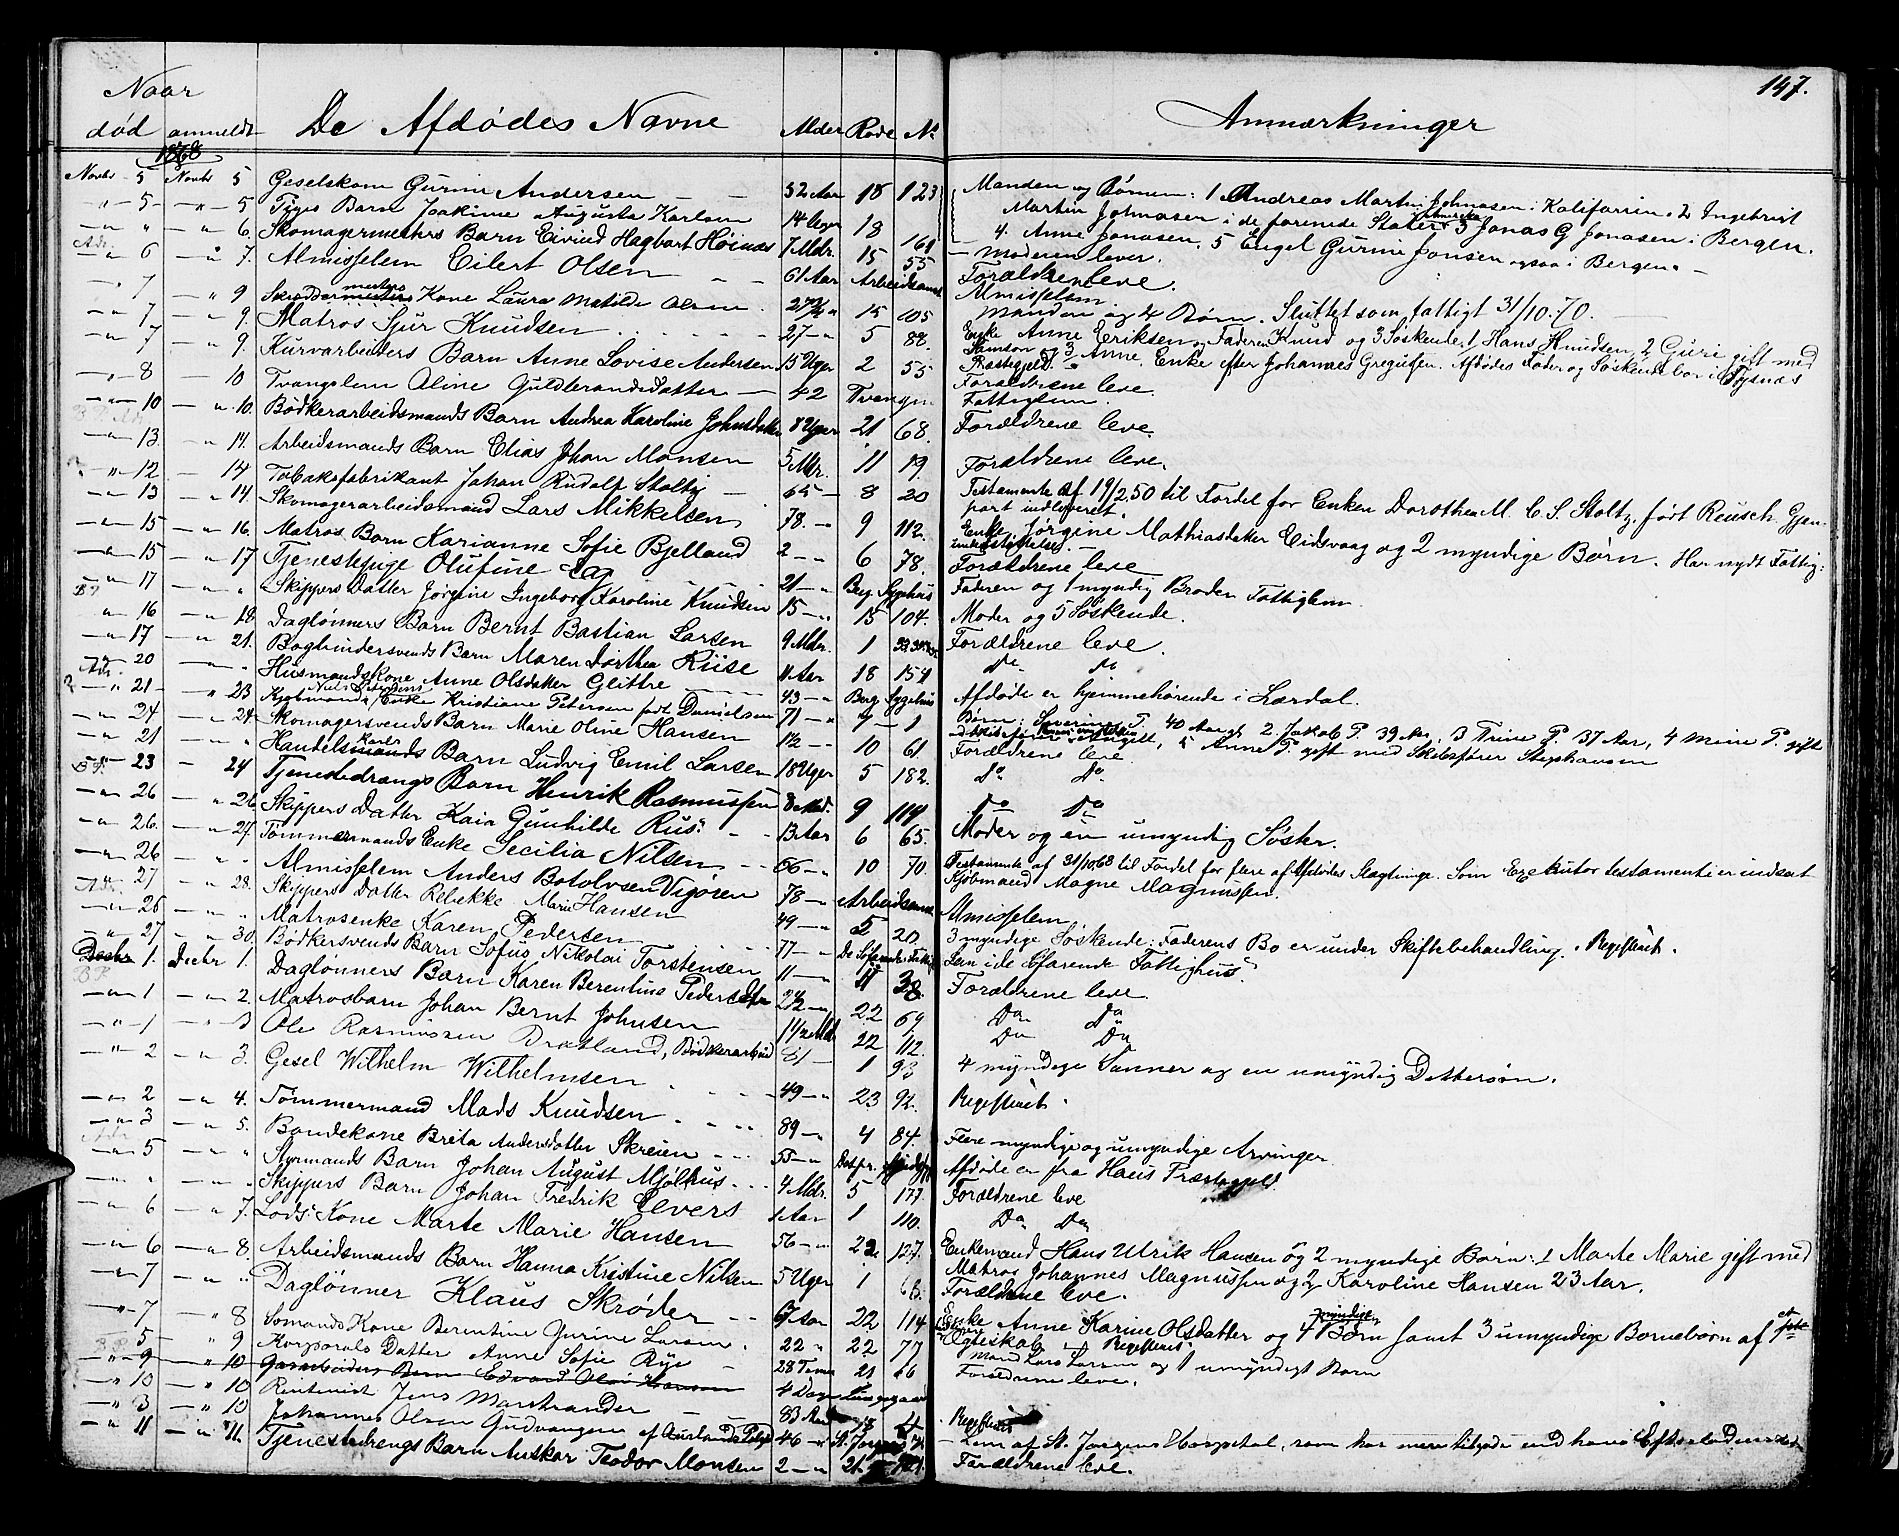 147.
Naar
død anmeldt De Afdødes Navne Alder Rode No Anmærkninger
1868
Novbr 5 Novbr 5 Geselskone Gurine Andersen 52 Aar 18 123 Manden og Børnene: 1 Andreas Martin Johnasen i Kalifornien 2 Ingebrigt
Martin Johnasen i de forenede Stater Amerika 3 Jonas G Jonasen i Bergen.
4. Anne Jonasen, 5 Engel Gurine Jonsen ogsaa i Bergen.
5 5 Barn Joakime Augusta Karlsen 14 Uger 18 161 Moderen lever.
6. Skomagermesters Barn Eivind Hagbart 7 Mdr. 15 55 Forældrene leve.
6 7. Almisselem Eilert Olsen 61 Aar Almisselem
7 9 Skreddermesters Kone Laura Matilde 27 15 105 Manden og 4 Børn. Sluttet som fattigt 31/10.70.
7 9. Matros Sjur Knudsen 27 5 88. Enke Anne Eriksen, Faderen Knud og 3 Søskende, 1 Hans Knudsen, 2 Guri gift med
Samson og 3 Anne, Enke efter Johannes Gregusen. Afdødes Fader og Søskende bor i Tysnæs
Præstegjeld.
7 9. Kurvarbeiders Barn Anne Lovise Andersen 15 Uger 2 55 Forældrene leve.
8 10 Tvangslem Aline Guldbrandsdatter 42 Tvangsn Fattiglem.
10 10. Bødkerarbeidsmands Barn Andrea Karoline Johnsdatter 8 Uger 21 68. Forældrene leve.
13. 14. Arbeidsmands Barn Elias Johan Monsen 5 Mdr. 11 19. Forældrene leve.
12 14 Tobaksfabrikant Johan Rudolf Stoltz 65 8 20 Testamente af 19/2.50 til Fordel for Enken Dorothea M. C. S. Stoltz, født Reusch. Gjen-
part indleveret.
13 14. Skomagerarbeidsmand Lars Mikkelsen 78. 9 112. Enke Jørgine Mathiasdatter Eidsvaag og 2 myndige Børn. Har nydt Fattig-
understøttelse.
15 16. Matros Barn Karianne Sofie Bjelland 2 6 78. Forældrene leve
15 17 Tjenestepige Olufine 21 Berg. Sygehus Faderen og 1 myndig Broder Fattiglem.
17 Skippers Datter Jørgine Ingeborg Karoline Knudsen 15 15 104. Moder og 5 Søskende.
16 18. Daglønners Barn Bernt Bastian Larsen 9 Mdr. 1 Forældrene leve.
17 21. Bogbindersvends Barn Maren Dorthea Riise 11 Aar 18 154 Do Do
20 Husmandskone Anne Olsdatter Glittre 43 Berg. Sygehus Afdøde er hjemmehørende i Lærdal.
21 23 Kjøbmand Enke Kristiane Petersen født Danielsen 71 9 1 Børn: Severine P. 40 Aar, 2. Jakob P. 39 Aar, 3 Trine P. 37 Aar, 4 Mine P. gift
5 Anne P. gift med Skibsfører Stephansen
24 24. Skomagersvends Barn Marie Oline Hansen 12 10 61. Forældrene leve.
21 Handelskarls Barn Ludvig Emil Larsen 18 Uger 5 182. Do Do
23 24 Tjenestedrengs Barn Henrik Rasmussen 8 Md. 9 114 Do Do
26 26 Skippers Datter Kaia Gunhilde Rus. 13 Aar 6 65. Moder og en umyndig Søster.
26. 27. Tømmermands Enke Cecilia Nilsen 66 10 70. Testamente af 31/10.68 til Fordel for flere af Afdødes Slægtninge. Som Exekutor testamenti er indsat
Kjøbmand Magne Magnussen.
26 Almisselem Anders Botolvsen Vigøren 78 Almisselem.
27 28. Skippers Datter Rebekke Marie Hansen 49 5 20 3 myndige Søskende. Faderens Bo er under Skiftebehandling. Registreret.
26 Matrosenke Karen Pedersen 77 Lem i de Søfarende Fattighus
27 30. Bødkersvends Barn Sofus Nikolai Torstensen 11 11 38. Forældrene leve
Decbr 1. Decbr 1. Daglønners Barn Karen Berentine Pedersdtr 2 1/2 22 69 Do Do
1 2. Matrosbarn Johan Bernt Johnsen 1 1/2 Mdr 22 112. Do Do
1 3 Ole Rasmussen Bratland, Bødkerarbeid 81 1 93 4 myndige Sønner og en umyndig Dattersøn.
2 3. Gesel Wilhelm Wilhelmsen 49 23 92. Registreret.
2 4. Tømmermand Mads Knudsen 89 4 84. Flere myndige og umyndige Arvinger
3 5. Bondekone Brita Andersdatter Skreien 55 Afdøde er fra Haus Præstegjeld.
5 Styrmands Barn Johan August Mjølhus 4 Mdr. 5 177. Forældrene leve
Skippers Barn Johan Fredrik Evers 1 Aar 1 110. Do Do
6 7. Lods Kone Marte Marie Hansen 56 22 127. Enkemand Hans Ulrik Hansen og 2 myndige Børn: 1 Marte Marie gift med
Matros Johannes Magnussen og 2 Karoline Hansen 23 Aar.
6 8. Arbeidsmands Barn Hanna Kristine Nilsen 5 Uger 1 Forældrene leve.
7 Daglønner Klaus Skrøder 67 Aar 22 114 Enke Anne Karine Olsdatter og 4 myndige Børn samt 3 umyndige Børnebørn af
Ægteskab. Registreret.
7 8 Sømands Kone Berentine Gurine Larsen 22 22 77 Mand Lars Larsen og 1 umyndigt Barn
5 9 Korporals Datter Anne Sofie Rye 28 Timer 21 Forældrene leve.
9 10 Garnarbeiders Barn Edvard Olai Hansen 4 Dage
10 10 Rentenist Jens Marstrander 83 Aar 18 4 Registreret
3 10 Johannes Olsen Gudvangen af Aurlands Pstgj 46 St. Jørgens Lem af St. Jørgens Hospital, som har mere tilgode end hans Efterladenskab
11 11. Tjenestedrengs Barn Anskar Teodor Monsen 2 21. Forældrene leve.